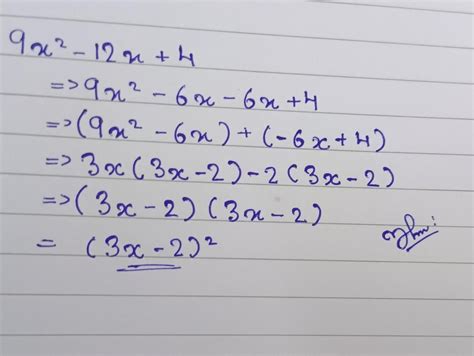 9x² - 12x + 4
=> 9x² - 6x - 6x + 4
=> (9x² - 6x) + (-6x + 4)
=> 3x (3x - 2) - 2 (3x - 2)
=> (3x - 2) (3x - 2)
= (3x - 2)²